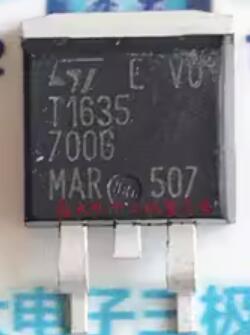 ST E V0
T1635
700G
MAR 507
电子三极